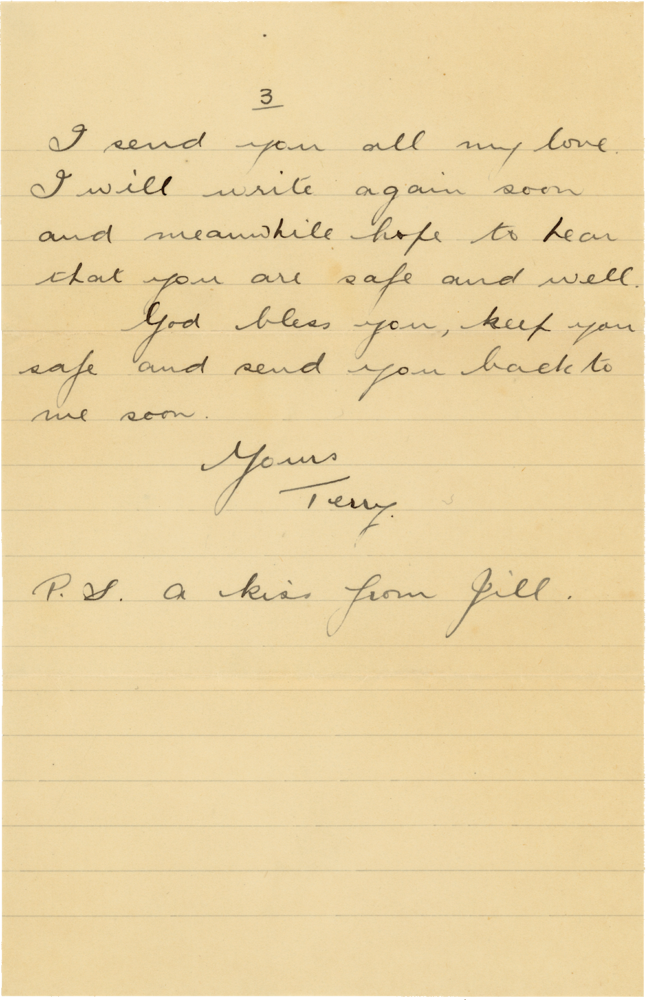 3
I send you all my love.
I will write again soon
and meanwhile hope to hear
that you are safe and well.
God bless you, keep you
safe and send you back to
me soon.
Yours
Terry.
P.S. a kiss from Jill.